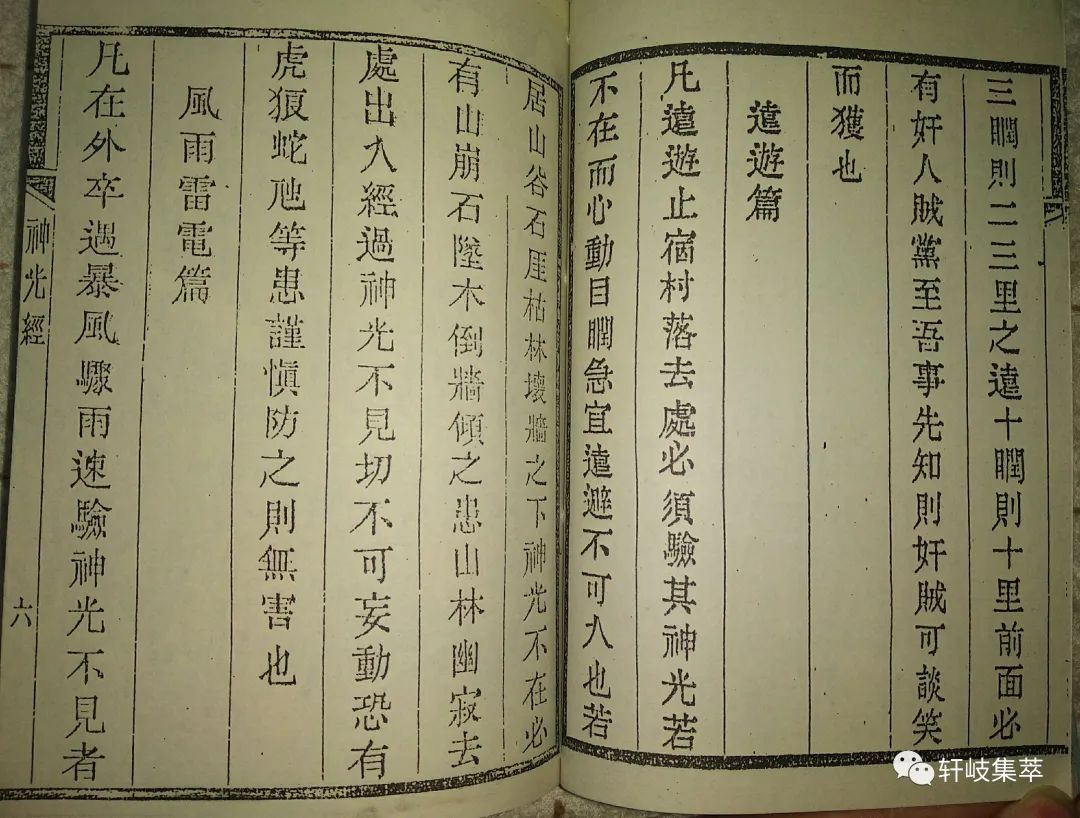 三瞤則二三里之遠十瞤則十里前面必
有奸人賊黨至吾事先知則奸賊可談笑
而獲也
遠遊篇
凡遠遊止宿村落去處必須驗其神光若
不在而心動目瞤急宜遠避不可入也若
居山谷石厓枯林壞牆之下神光不在必
有山崩石墜木倒牆傾之患山林幽寂去
處出入經過神光不見切不可妄動恐有
虎狼蛇虺等患謹慎防之則無害也
風雨雷電篇
凡在外卒遇暴風驟雨速驗神光不見者
神光經
六
轩岐集萃